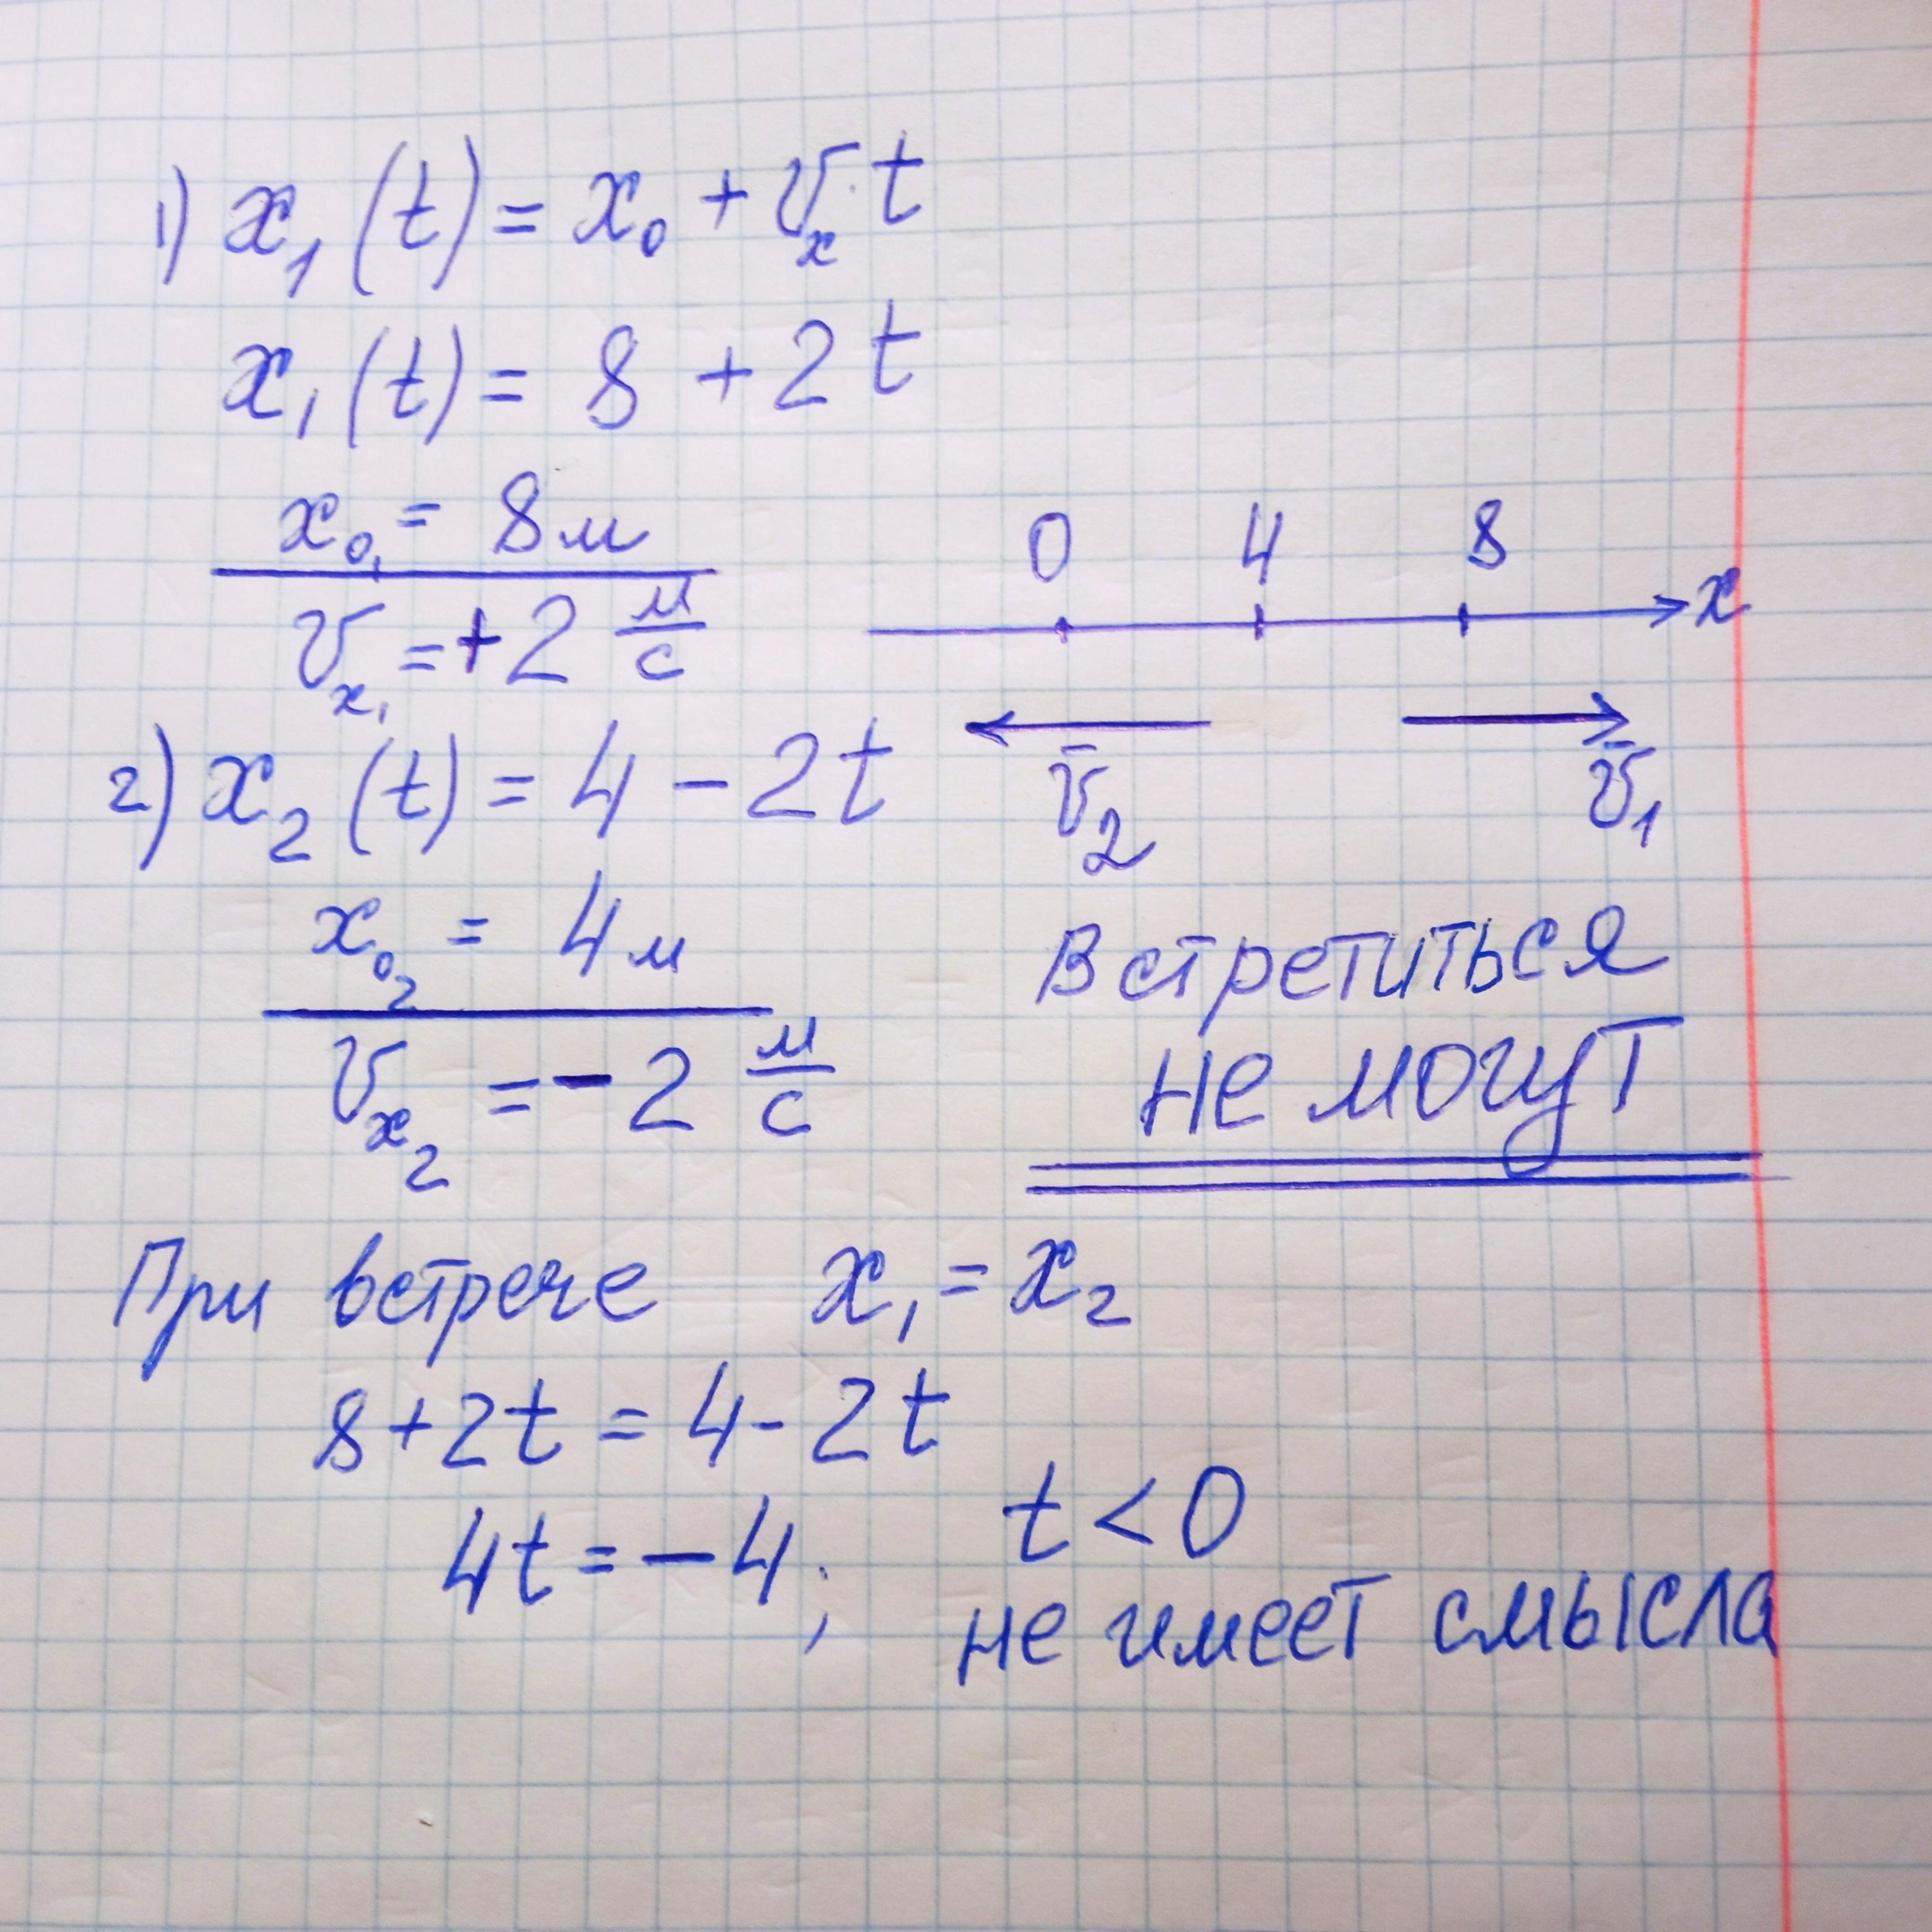 1) x₁(t) = x₀ + vₓ·t
x₁(t) = 8 + 2t
x₀₁ = 8м
vₓ₁ = +2 м/с
0 4 8
x
v̄₂ v̄₁
2) x₂(t) = 4 - 2t
x₀₂ = 4м
vₓ₂ = -2 м/с
встретиться
не могут
При встрече x₁ = x₂
8 + 2t = 4 - 2t
4t = -4; t < 0
не имеет смысла